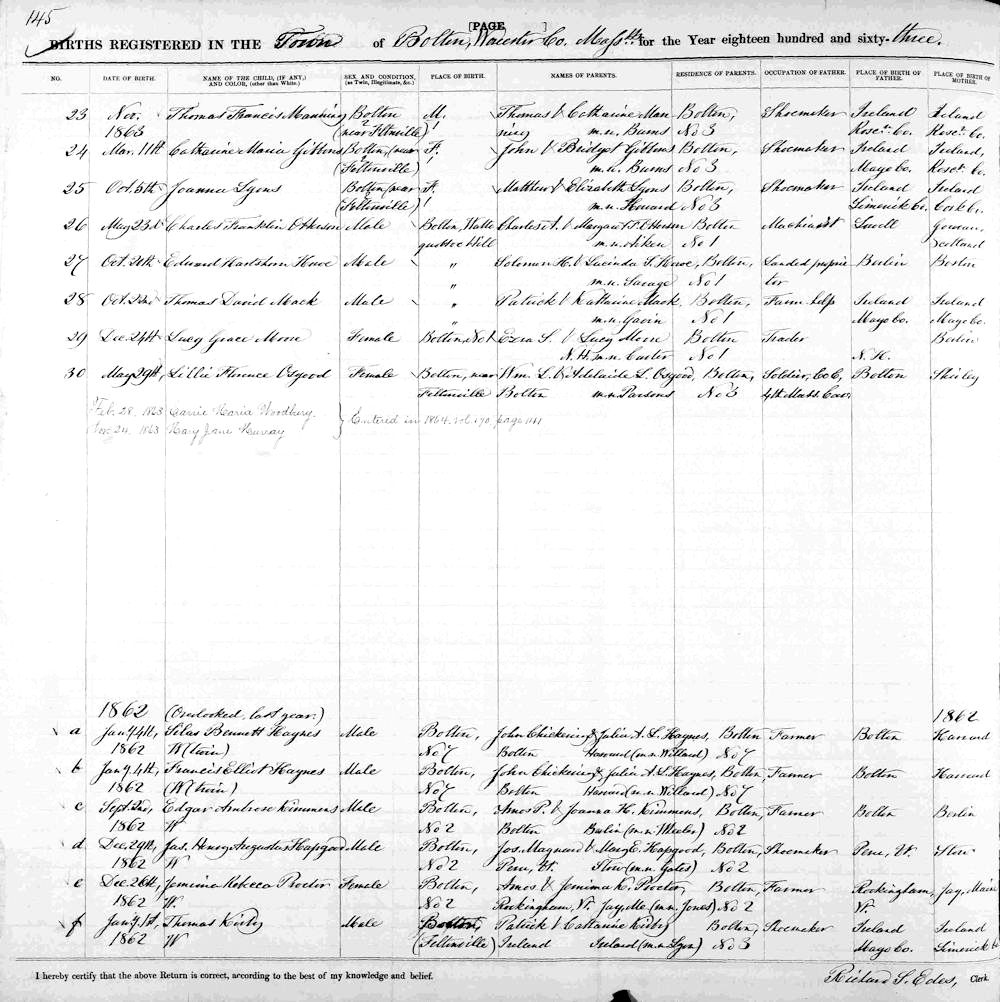 145
[PAGE]
BIRTHS REGISTERED IN THE Town of Bolton, Worcester Co. Mass. for the Year eighteen hundred and sixty-three.
NO. DATE OF BIRTH. NAME OF THE CHILD, (IF ANY,) AND COLOR, (other than White.) SEX AND CONDITION, (as Twin, Illegitimate, &c.) PLACE OF BIRTH. NAMES OF PARENTS. RESIDENCE OF PARENTS. OCCUPATION OF FATHER. PLACE OF BIRTH OF FATHER. PLACE OF BIRTH OF MOTHER.
23 Nov. Thomas Francis Manning Bolton M. Thomas & Catharine Man Bolton, Shoemaker Ireland Ireland
1863 (near Feltonville) ning m.n. Burns No 3 Rosc. Co. Rosc. Co.
24 Mar. 11th Catharine Maria Gibbons Bolton, (near F. John & Bridget Gibbons Bolton, Shoemaker Ireland Ireland,
Feltonville) m.n. Burns No 3 Mayo Co. Rosc. Co.
25 Oct. 5th Joanna Lyons Bolton (near F. Matthew & Elizabeth Lyons Bolton, Shoemaker Ireland Ireland
Feltonville) m.n. Howard No 3 Limerick Co. Cork Co.
26 May 23d Charles Franklin Male Bolton, Watta Charles A. & Margaret Bolton Machinist Lowell
quottoc Hill m.n. Aiken No 1 Scotland
27 Oct. 20th Edward Hartshorn Howe Male " Solomon H. & Lucinda S. Howe, Bolton, Landed proprie Berlin Boston
" m.n. Savage No 1 tor
28 Oct. 22nd Thomas David Mack Male " Patrick & Katharine Mack Bolton, Farm help Ireland Ireland
" m.n. Gavin No 1 Mayo Co. Mayo Co.
29 Dec. 24th Lucy Grace Moore Female Bolton, No 1 Ezra S. & Lucy Moore Bolton Trader Berlin
N.H. m.n. Carter No 1 N.H.
30 May 29th, Lillie Florence Osgood Female Bolton, near Wm. L. & Adelaide L. Osgood, Bolton, Soldier, Co C, Bolton Shirley
Feltonville Bolton m.n. Parsons No 3 4th Mass. Cav.
Feb. 28, 1863 Carrie Maria Woodbury.
Nov. 24, 1863 Mary Jane Murray } Entered in 1864. vol. 170, page 141
1862 (Overlooked, last year.) 1862
a Jany. 4th, Silas Bennett Haynes Male Bolton, John Chickering & Julia A. L. Haynes, Bolton Farmer Bolton Harvard
1862 W (twin) No 7 Bolton Harvard (m.n. Willard) No 7
b Jany. 4th, Francis Elliot Haynes Male Bolton, John Chickering & Julia A. L. Haynes, Bolton Farmer Bolton Harvard
1862 (W twin) No 7 Bolton Harvard (m.n. Willard) No 7
c Sept. 22d, Edgar Ambrose Kimmens Male Bolton, Amos P. & Joanna H. Kimmens, Bolton, Farmer Bolton Berlin
1862 W No 2 Bolton Berlin (m.n. Wheeler) No 2
d Dec. 29th, Jas. Henry Augustus Hapgood Male Bolton, Jos. Maynard & Mary E. Hapgood, Bolton, Shoemaker Peru, Vt. Stow
1862 W No 2 Peru, Vt. Stow (m.n. Gates) No 2
e Dec. 26th, Jemima Rebecca Proctor Female Bolton, Amos & Jemima K. Proctor, Bolton, Farmer Rockingham, Jay, Maine
1862 W. No 2 Rockingham, Vt. Jay, Me. (m.n. Jones) No 2 Vt.
f Jany. 1st, Thomas Kirby Male Bolton, Patrick & Catharine Kirby Bolton, Shoemaker Ireland Ireland
1862 W (Feltonville) Ireland Ireland (m.n. Lyon) No 3 Mayo Co. Limerick Co
I hereby certify that the above Return is correct, according to the best of my knowledge and belief. Richard S. Edes, Clerk.